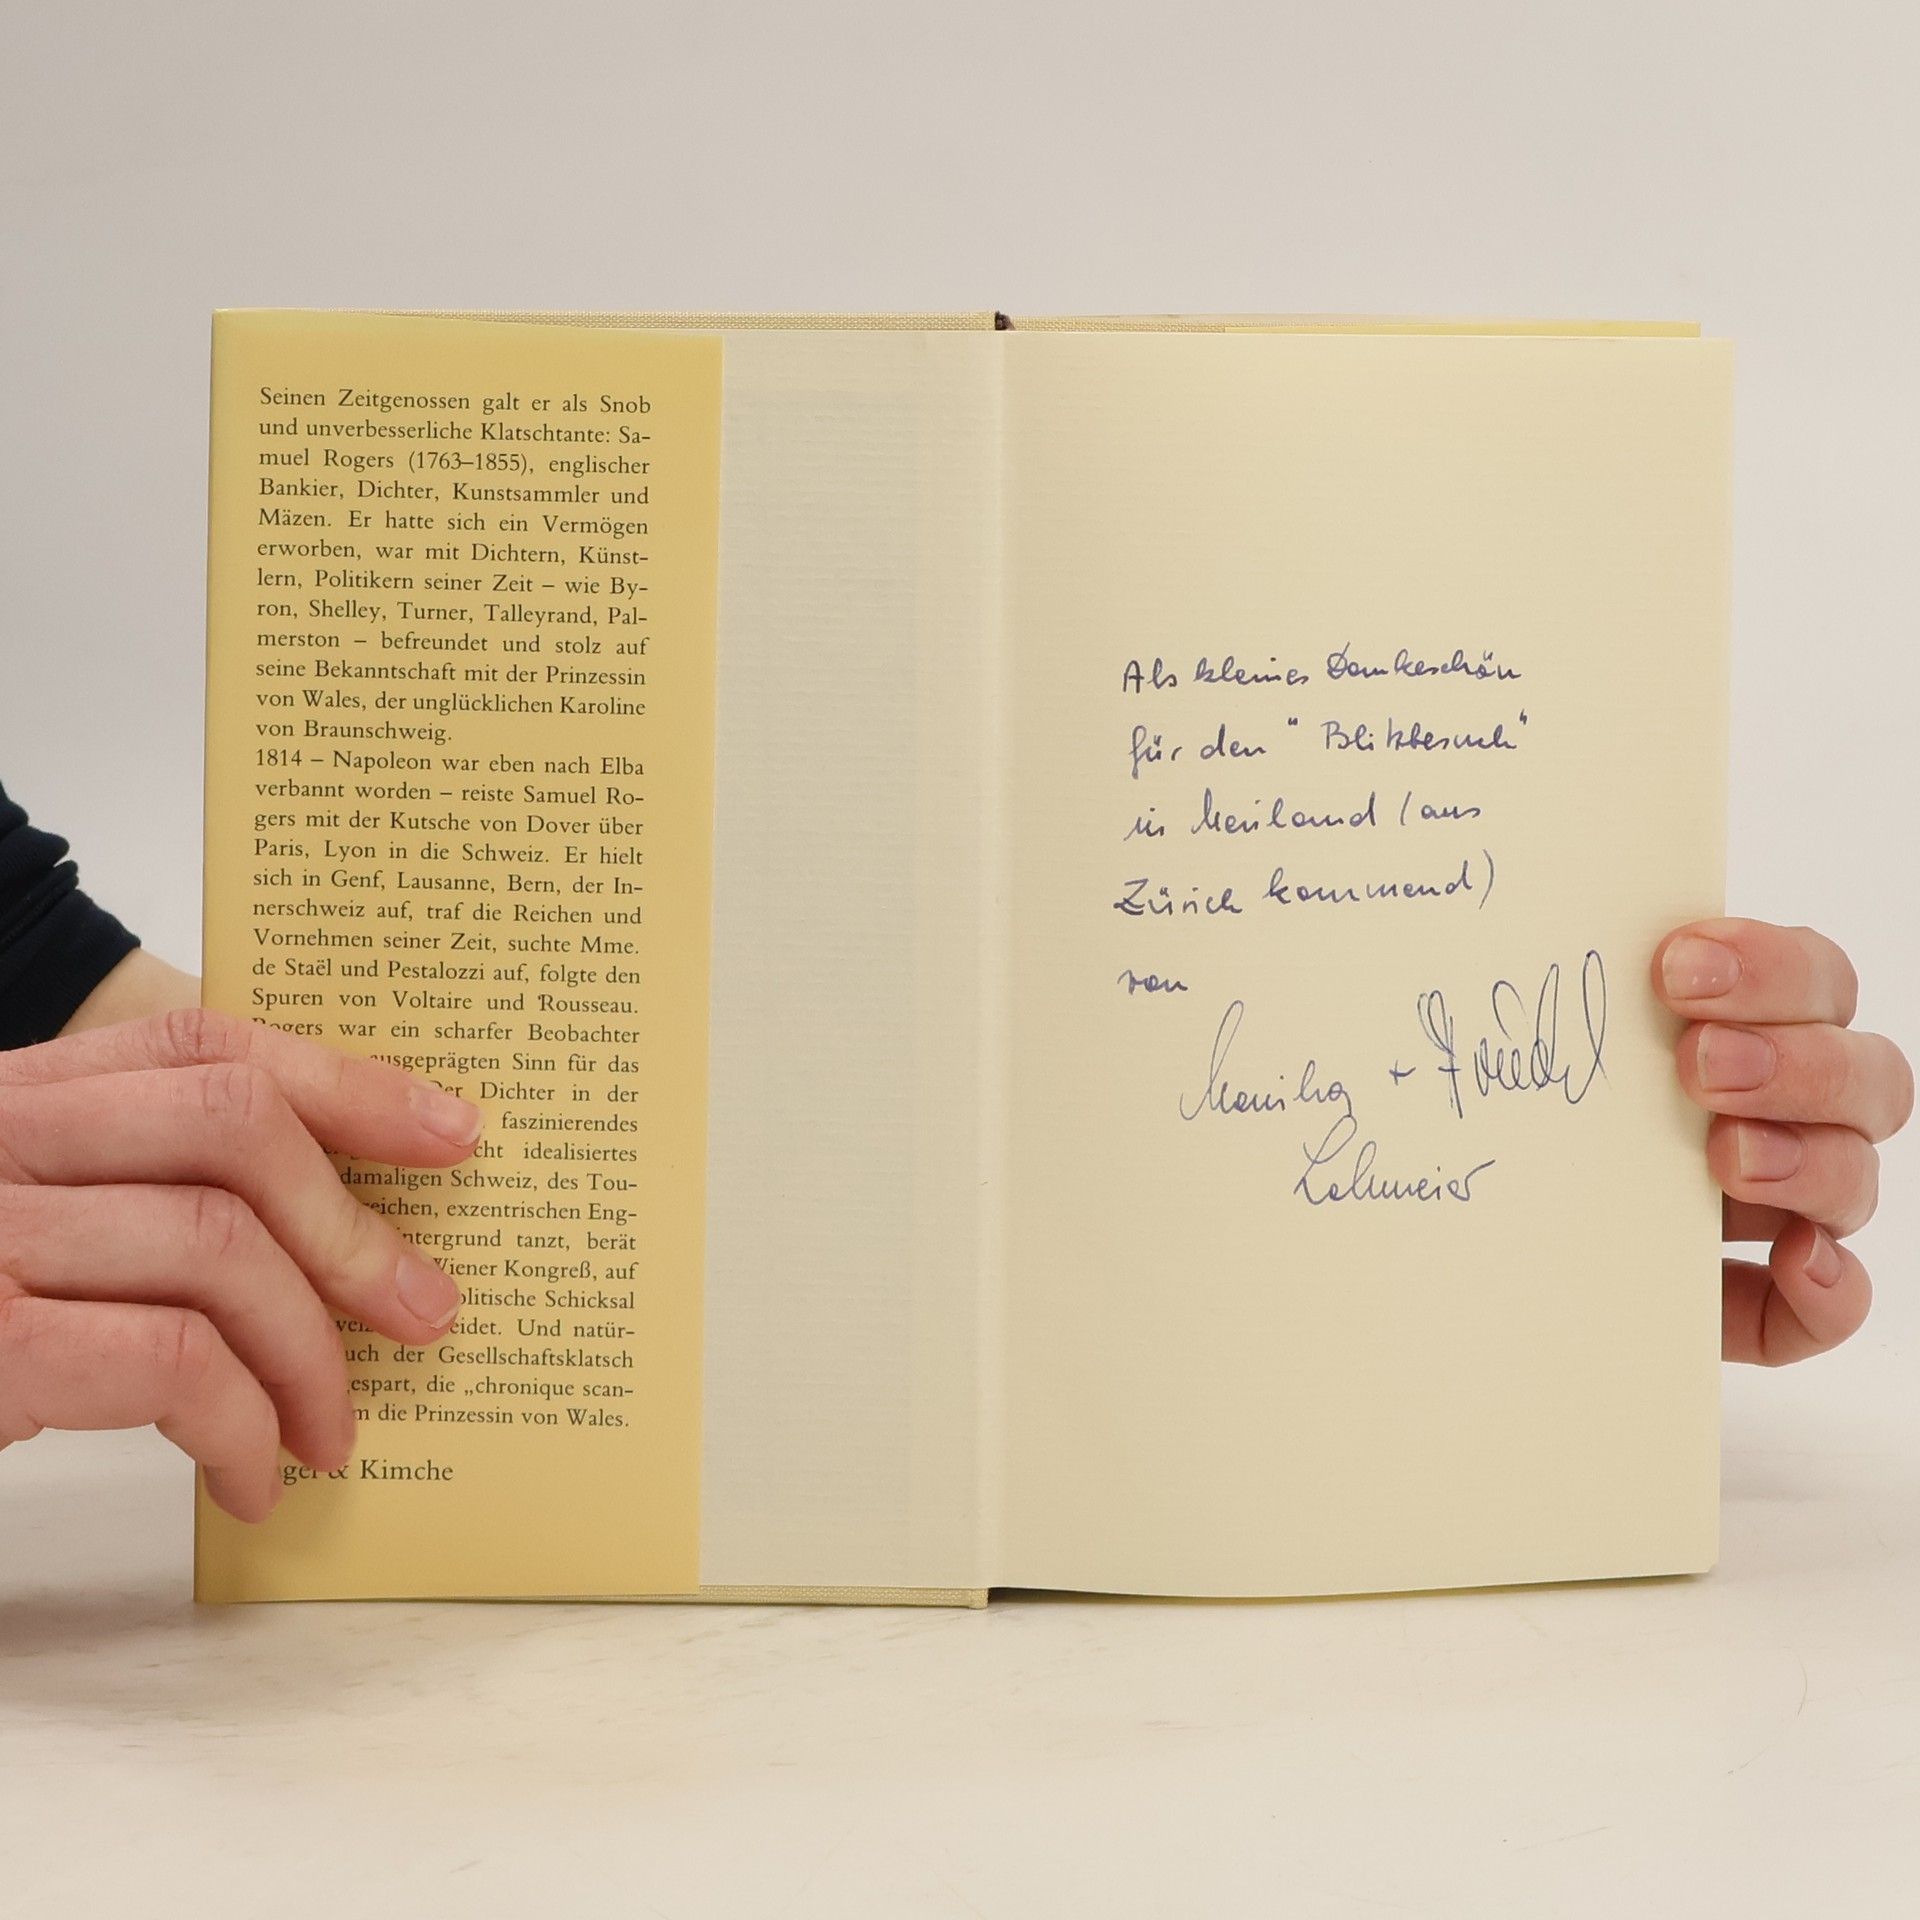 Seinen Zeitgenossen galt er als Snob
und unverbesserliche Klatschtante: Sa-
muel Rogers (1763–1855), englischer
Bankier, Dichter, Kunstsammler und
Mäzen. Er hatte sich ein Vermögen
erworben, war mit Dichtern, Künst-
lern, Politikern seiner Zeit – wie By-
ron, Shelley, Turner, Talleyrand, Pal-
merston – befreundet und stolz auf
seine Bekanntschaft mit der Prinzessin
von Wales, der unglücklichen Karoline
von Braunschweig.
1814 – Napoleon war eben nach Elba
verbannt worden – reiste Samuel Ro-
gers mit der Kutsche von Dover über
Paris, Lyon in die Schweiz. Er hielt
sich in Genf, Lausanne, Bern, der In-
nerschweiz auf, traf die Reichen und
Vornehmen seiner Zeit, suchte Mme.
de Staël und Pestalozzi auf, folgte den
Spuren von Voltaire und Rousseau.
Rogers war ein scharfer Beobachter
ausgeprägten Sinn für das
Der Dichter in der
faszinierendes
cht idealisiertes
damaligen Schweiz, des Tou-
eichen, exzentrischen Eng-
ntergrund tanzt, berät
Wiener Kongreß, auf
olitische Schicksal
weiz eidet. Und natür-
uch der Gesellschaftsklatsch
espart, die „chronique scan-
m die Prinzessin von Wales.
gel & Kimche
Als kleines Dankeschön
für den "Blitzbesuch"
in Meiland (aus
Zürich kommend)
von
Monika + Friedel
Lohmeier